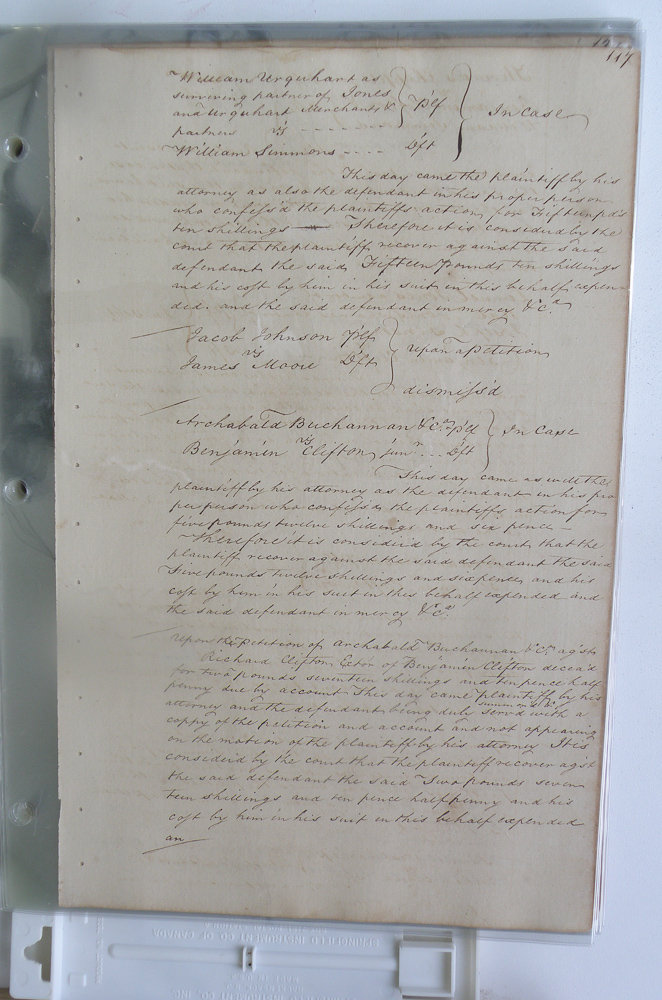 117
William Urquhart as
surviving partner of Jones
and Urquhart Merchants &
partners
vs
William Simmons ----
Plf
Dft
In Case
This day came the plaintiff by his
attorney as also the defendant in his proper person
who confess'd the plaintiffs action for Fifteen pds
ten shillings — Therefore it is considered by the
court that the plaintiff recover against the said
defendant the said Fifteen pounds ten shillings
and his cost by him in his suit in this behalf expen-
ded. and the said defendant in mercy &c.a
Jacob Johnson Plf
vs
James Moore Dft
upon a Petition
dismiss'd
Archabald Buchannan & C.o Plf
vs
Benjamin Clifton jun.r ... Dft
In Case
This day came as well the
plaintiff by his attorney as the defendant in his pro
per person who confess'd the plaintiffs action for
five pounds twelve shillings and six pence —
Therefore it is consider'd by the court that the
plaintiff recover against the said defendant the said
Five pounds twelve shillings and sixpence and his
cost by him in his suit in this behalf expended and
the said defendant in mercy &c.a
Upon the Petition of Archabald Buchannan & C.o agst
Richard Clifton Ector of Benjamin Clifton decea'd
for two pounds seventeen shillings and ten pence half
penny due by account This day came plaintiff by his
attorney and the defendant being duly serv'd with a
summons &
coppy of the petition and account and not appearing
on the motion of the plaintiff by his attorney It is
consider'd by the court that the plaintiff recover agst
the said defendant the said Two pounds seven
teen shillings and ten pence halfpenny and his
cost by him in his suit in this behalf expended
an
SPRINGFIELD INSTRUMENT CO. OF CANADA